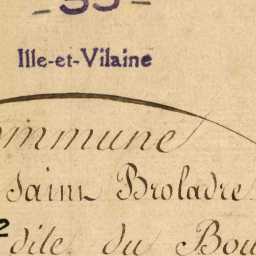 Ille-et-Vilaine
Commune
Saint Broladre
dite du Bou